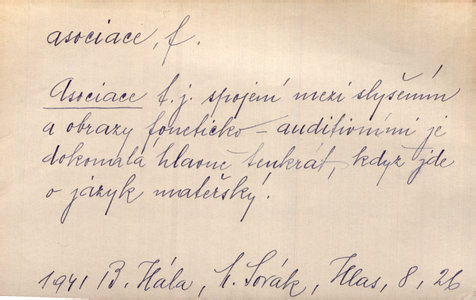 asociace, f.
Asociace t.j. spojení mezi slyšením
a obrazy foneticko-auditivními je
dokonalá hlavně tenkrát, když jde
o jazyk mateřský.
1941 B. Hála, M. Sovák, Hlas, 8, 26